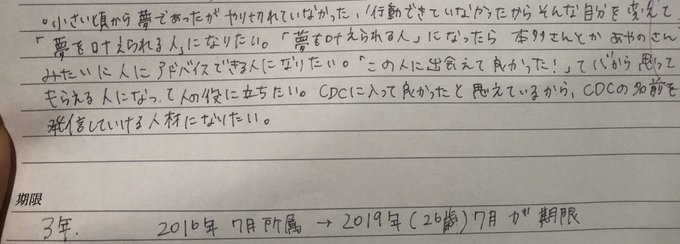 。小さい頃から夢であったがやりきれていなかった、行動できていなかったからそんな自分を変えて
「夢を叶えられる人」になりたい。「夢を叶えられる人」になったら 本多さんとかあやのさん
みたいに人にアドバイスできる人になりたい。「この人に出会えて良かった!」て心から思って
もらえる人になって人の役に立ちたい。CDCに入って良かったと思えているから、CDCの名前を
発信していける人材になりたい。
期限
3年. 2016年 7月所属 → 2019年(26歳)7月が期限